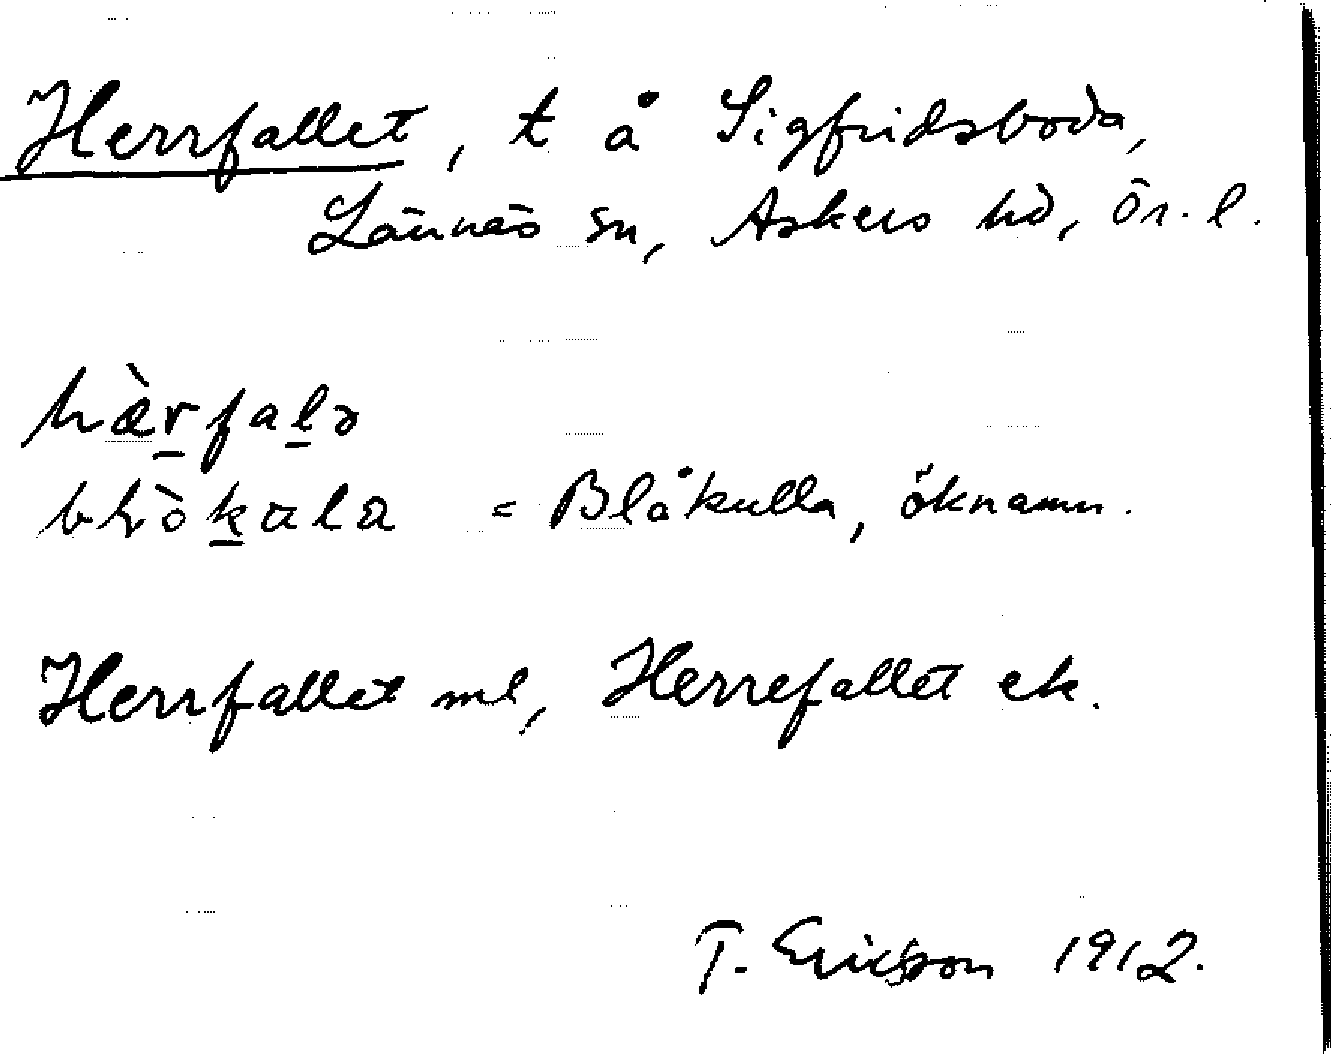 Herrfallet, t å Sigfridsboda,
Lännäs sn, Askers hd, Ör. l.
hæ̀r̲fal̲ə
bɫòk̲ula = Blåkulla, öknamn.
Herrfallet ml, Herrefallet ek.
T. Ericsson 1912.